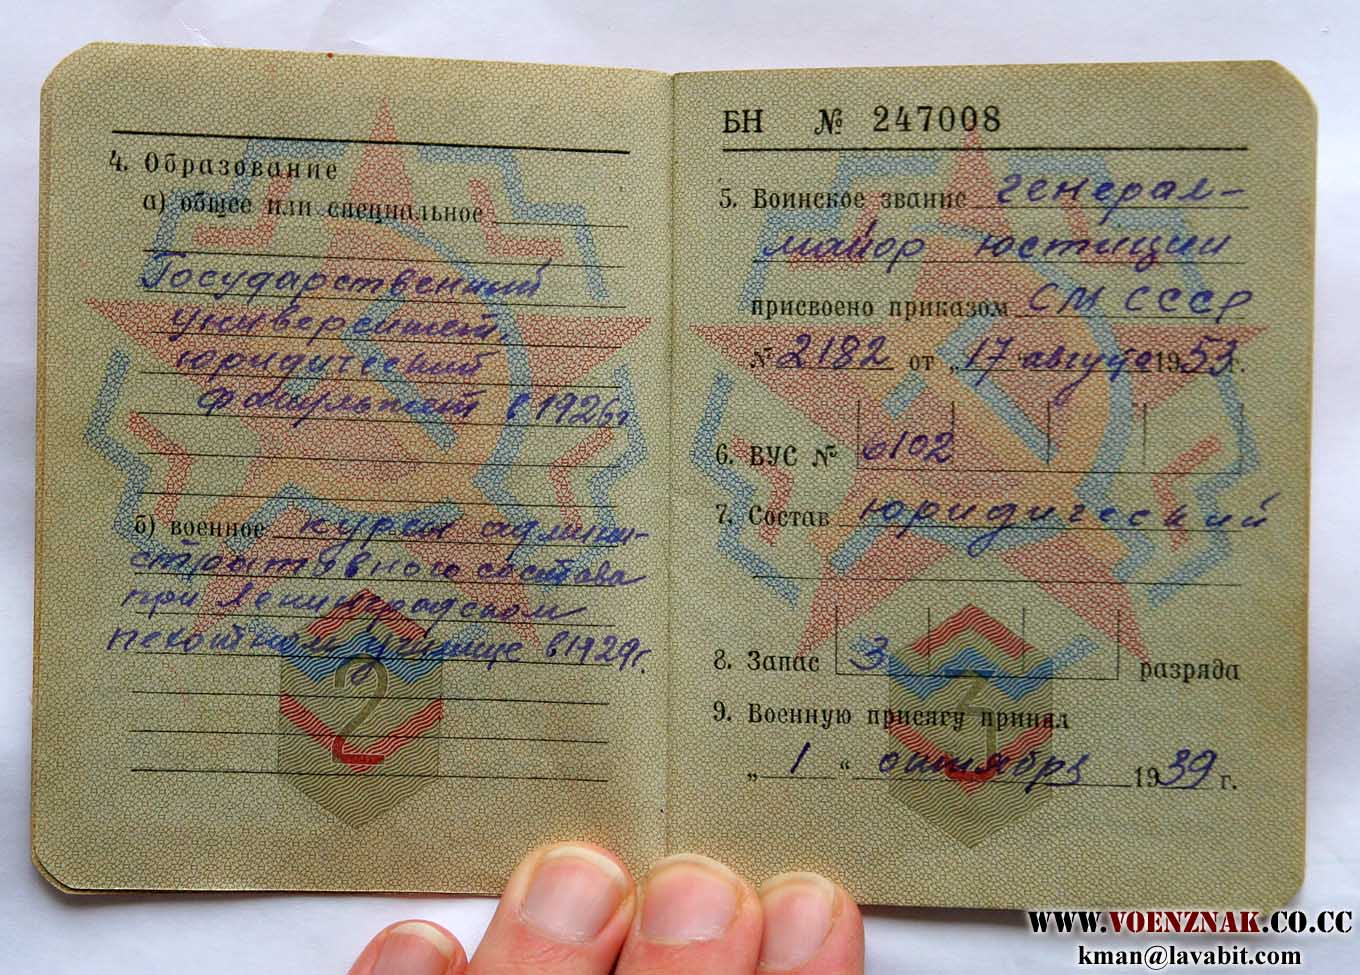 4. Образование
а) общее или специальное
Государственный
университет,
юридический
факультет в 1926 г
б) военное курсы админи-
стративного состава
при Ленинградском
пехотном училище в 1929 г.
2
БН № 247008
5. Воинское звание генерал-
майор юстиции
присвоено приказом СМ СССР
№ 2182 от „17" августа 1953 г.
6. ВУС № 0102
7. Состав юридический
8. Запас 3 разряда
9. Военную присягу принял
„1“ октября 1939 г.
3
WWW.VOENZNAK.CO.CC
kman@lavabit.com